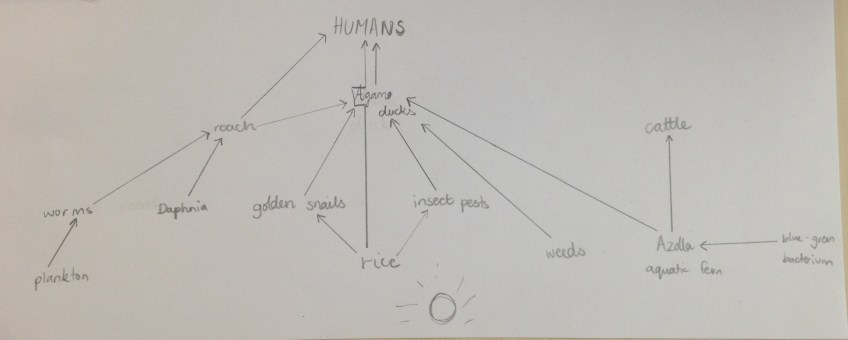 HUMANS
Agamo
ducks
roach
cattle
worms
Daphnia
golden snails
insect pests
plankton
rice
weeds
Azolla
aquatic fern
blue-green
bacterium